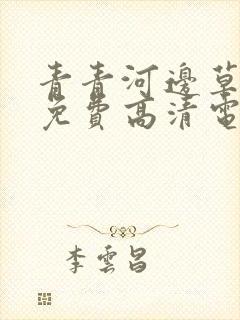 青青河邊草
免費高清電
李雲昌